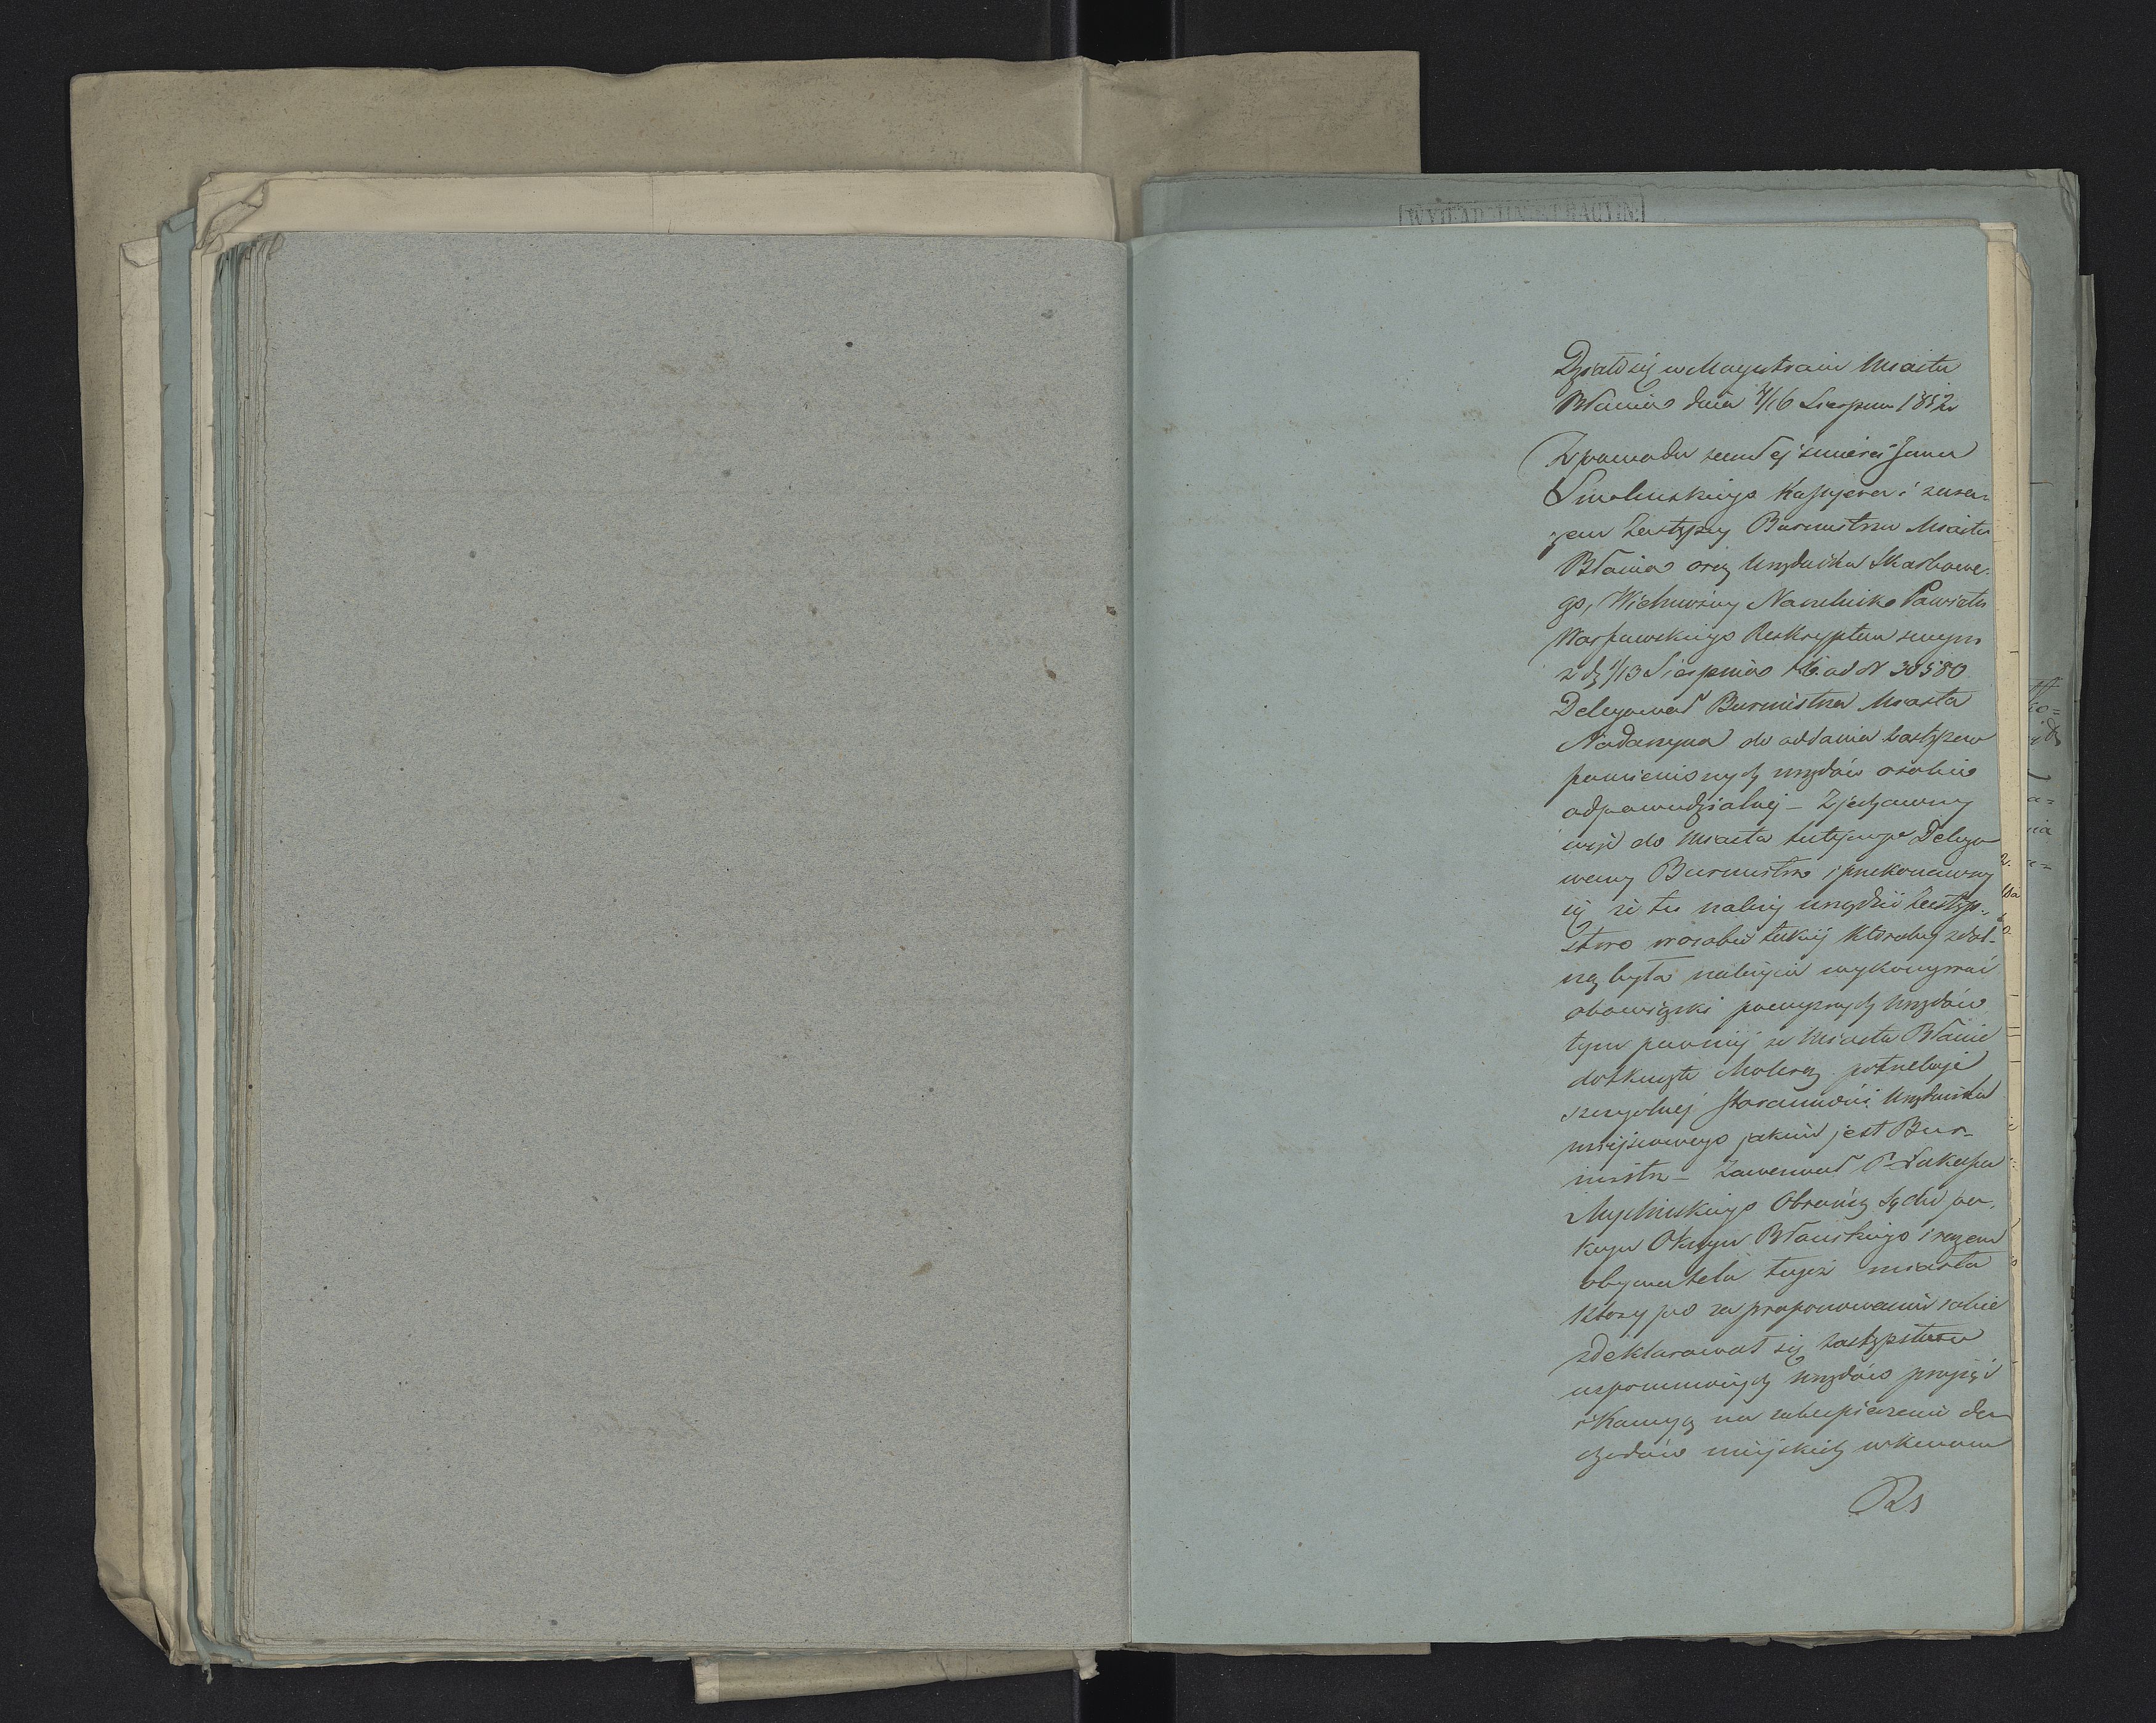 Działo się w Magistracie Miasta
Błonia dnia 4/16 Sierpnia 1852 r
Z powodu zaszłej śmierci Jana
Smoleńskiego Kassyera i zara-
zem Zastępcy Burmistrza Miasta
Błonia oraz Urzędnika Skarbowe-
go, Wielmożny Naczelnik Powiatu
Warszawskiego Reskryptem swym
z d. 1/13 Sierpnia r.b. ad N 30580
Delegował Burmistrza Miasta
Nadarzyna do oddania zastępstw
pomienionych urzędów osobie
odpowiedzialnej – Zjechawszy
więc do Miasta tutejszego Delego
wany Burmistrz i przekonawszy
się że tu należy urządzić zastęp-
stwo w osobie takiej któraby zdol-
ną była należycie wykonywać
obowiązki powyższych Urzędów
tym pewniej że Miasto Błonie
dotknięte Cholerą potrzebuje
szczególnej staranności Urzędnika
miejscowego jakim jest Bur-
mistrz – Zawezwał P. Łukasza
Obrońcę Sądu po-
koju Okręgu Błońskiego i razem
obywatela tegoż miasta
który po zaproponowaniu sobie
zdeklarował się zastępstwo
wspomnionych Urzędów przyjąć
i Kaucyą na zabezpieczenie do
chodów miejskich w kwocie
Rs